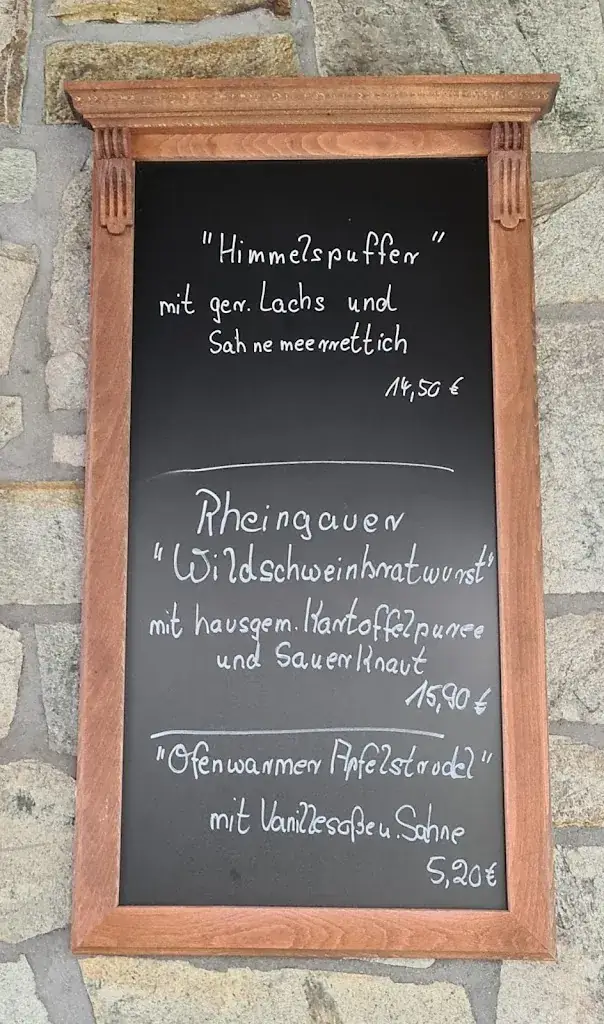 "Himmelspuffer"
mit ger. Lachs und
Sahnemeerrettich
14,50 €
Rheingauer
"Wildschweinbratwurst"
mit hausgem. Kartoffelpuree
und Sauerkraut
15,90 €
"Ofenwarmer Apfelstrudel"
mit Vanillesoße u. Sahne
5,20 €